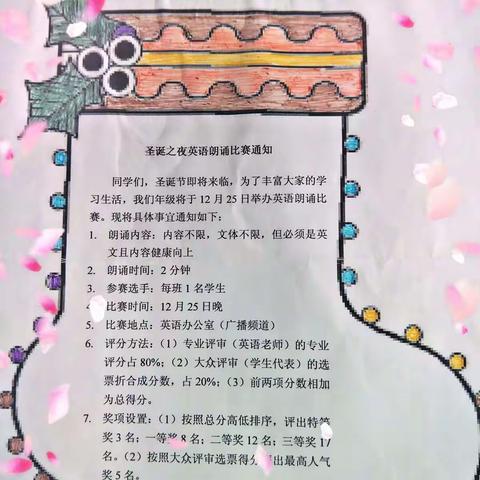 圣诞之夜英语朗诵比赛通知
同学们，圣诞节即将来临，为了丰富大家的学
习生活，我们年级将于 12 月 25 日举办英语朗诵比
赛。现将具体事宜通知如下：
1. 朗诵内容：内容不限，文体不限，但必须是英
文且内容健康向上
2. 朗诵时间：2 分钟
3. 参赛选手：每班 1 名学生
4. 比赛时间：12 月 25 日晚
5. 比赛地点：英语办公室（广播频道）
6. 评分方法：（1）专业评审（英语老师）的专业
评分占 80%；（2）大众评审（学生代表）的选
票折合成分数，占 20%；（3）前两项分数相加
为总得分。
7. 奖项设置：（1）按照总分高低排序，评出特等
奖 3 名；一等奖 8 名；二等奖 12 名；三等奖 17
名。（2）按照大众评审选票得分评出最高人气
奖 5 名。